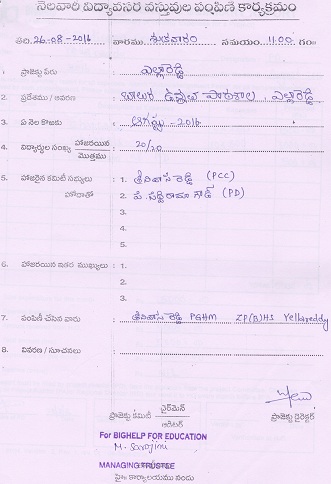 నెలవారి విద్యావసర వస్తువుల పంపిణీ కార్యక్రమం
తేది: 26-08-2016 వారము శుక్రవారం సమయం 11.00 గం॥
1. ప్రాజెక్టు పేరు : ఎల్లారెడ్డి
2. ప్రదేశము / ఆవరణ : బాలుర ఉన్నత పాఠశాల ఎల్లారెడ్డి
3. ఏ నెల కొఱకు : ఆగష్టు - 2016
4. విద్యార్థుల సంఖ్య హాజరయిన / మొత్తము : 20/20
5. హాజరైన కమిటీ సభ్యులు : 1. శ్రీనివాస్ రెడ్డి (PCC)
హోదాతో 2. (PD)
3.
4.
5.
6. హాజరయిన ఇతర ముఖ్యులు : 1.
2.
3.
7. పంపిణీ చేసిన వారు : శ్రీనివాస రెడ్డి PGHM ZP(B)HS Yellareddy
8. వివరణ / సూచనలు :
ప్రాజెక్టు కమిటీ ఛైర్మెన్ / ఆడిటర్ ప్రాజెక్టు డైరెక్టర్
For BIGHELP FOR EDUCATION
M. Sarojini
MANAGING TRUSTEE
హైద కార్యాలయము నందు